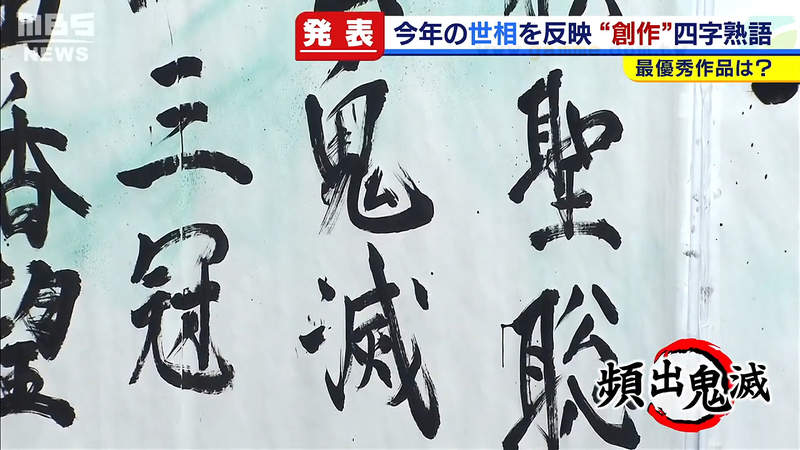 MBS
NEWS
発表
今年の世相を反映 “創作”四字熟語
最優秀作品は?
聖聡
鬼滅
三冠
香望
頻出鬼滅